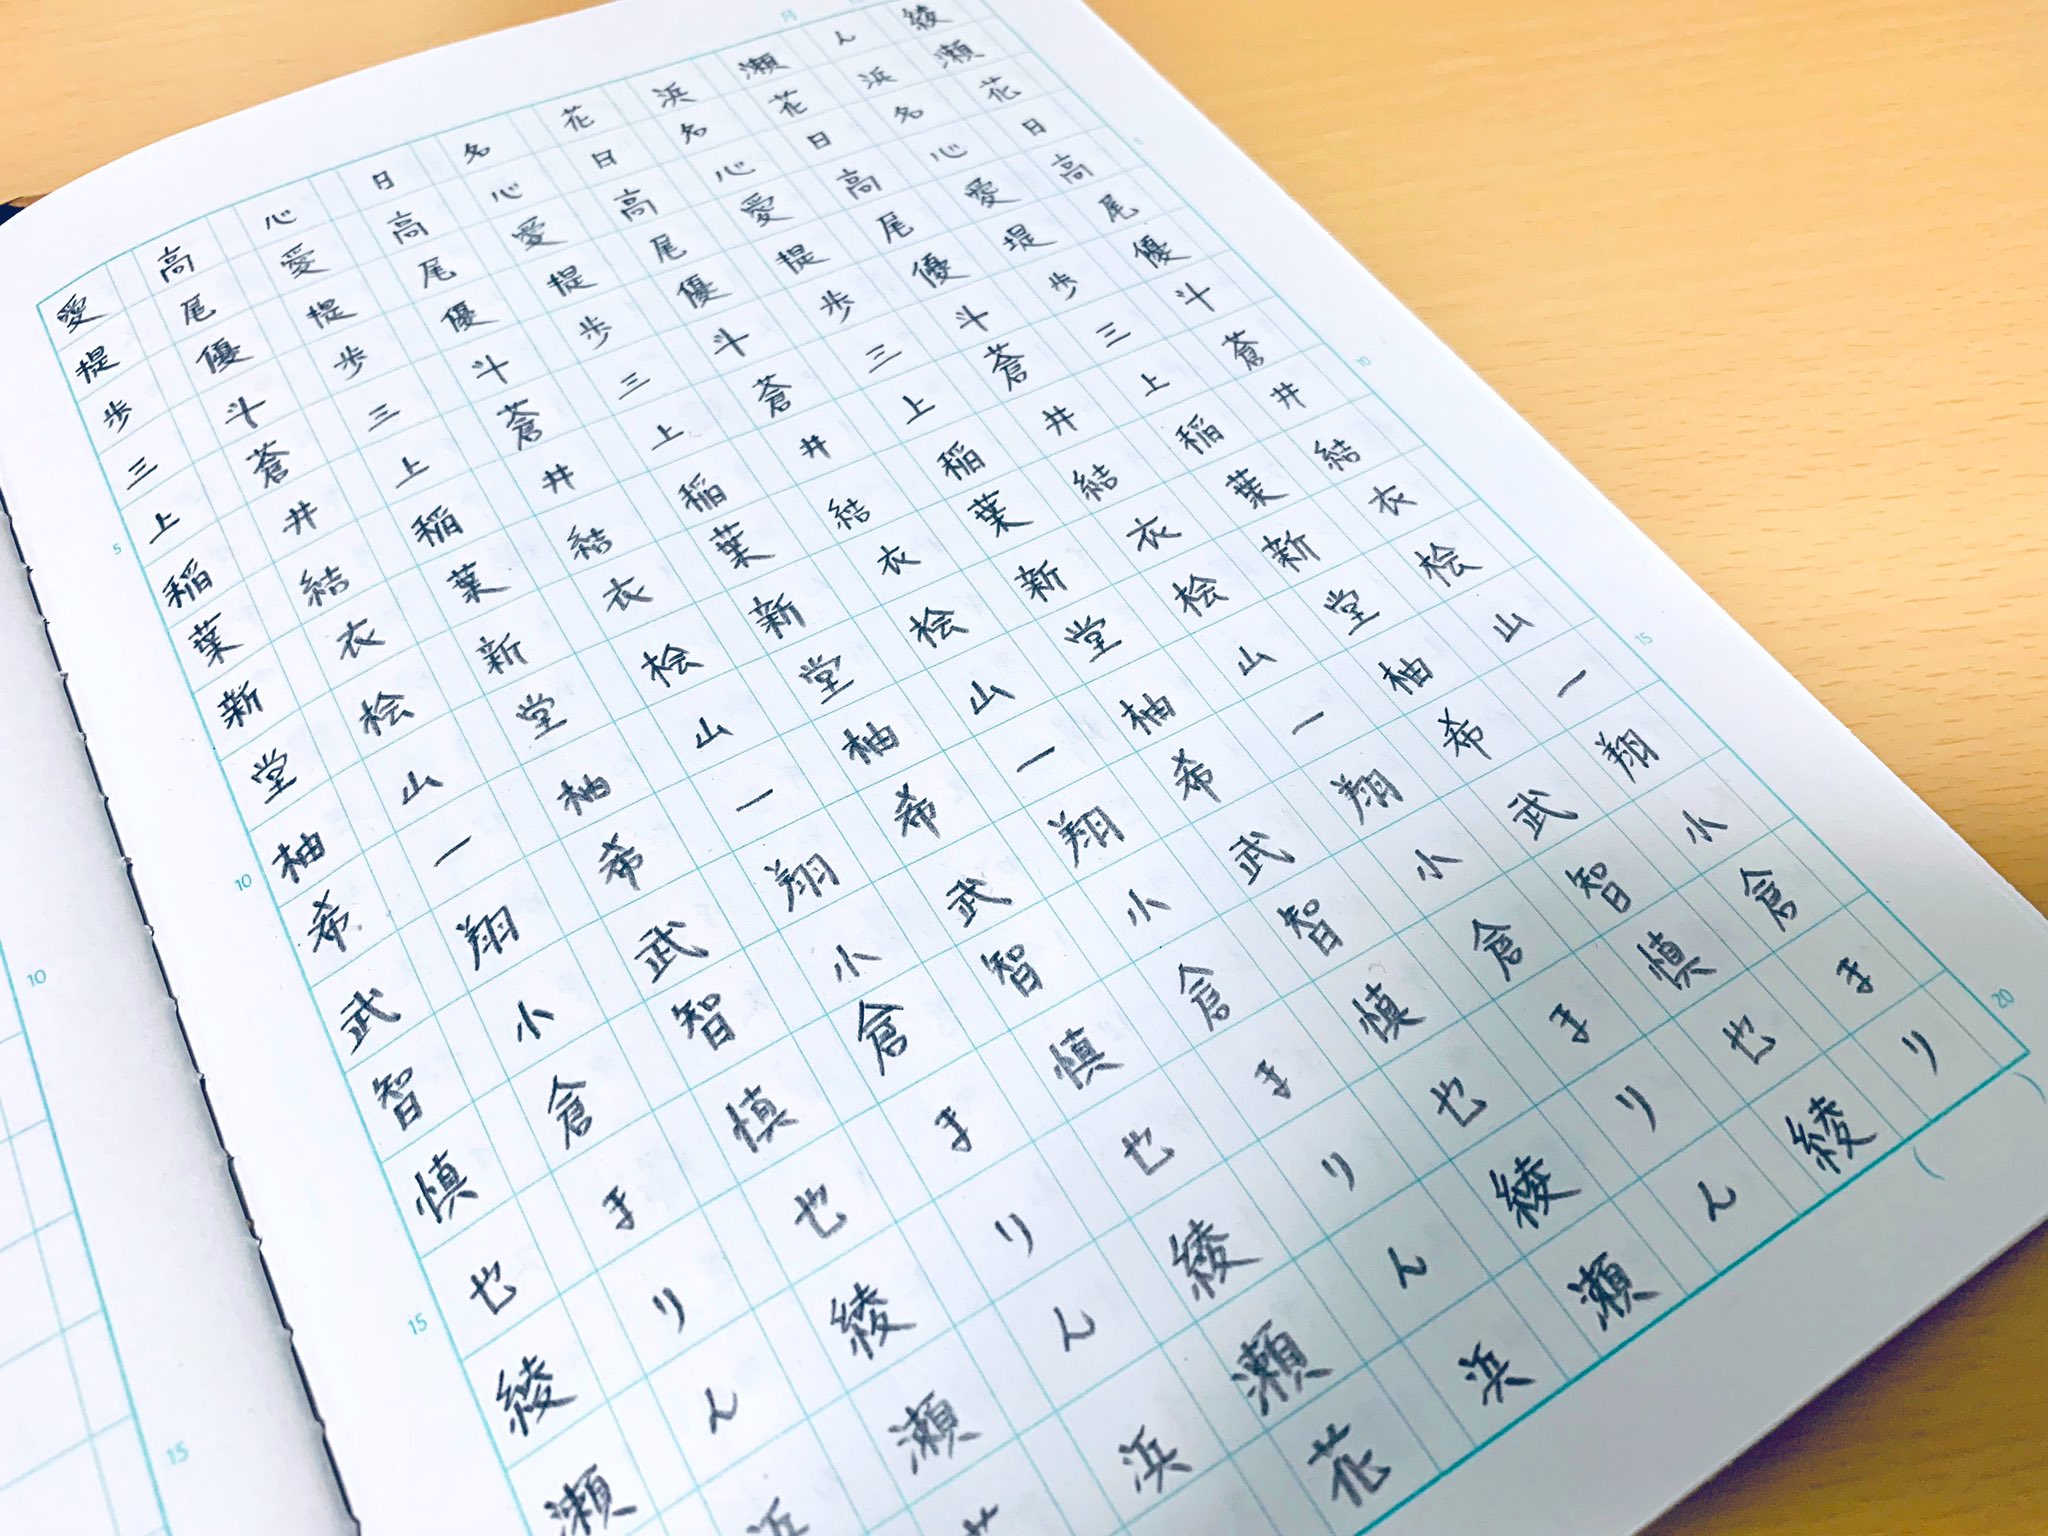 月
綾瀬花日高尾優斗蒼井結衣桧山一翔小倉まり
ん浜名心愛堤歩三上稲葉新堂柚希武智慎也綾
瀬花日高尾優斗蒼井結衣桧山一翔小倉まりん
浜名心愛堤歩三上稲葉新堂柚希武智慎也綾瀬
花日高尾優斗蒼井結衣桧山一翔小倉まりん浜
名心愛堤歩三上稲葉新堂柚希武智慎也綾瀬花
日高尾優斗蒼井結衣桧山一翔小倉まりん浜
心愛堤歩三上稲葉新堂柚希武智慎也綾瀬
高尾優斗蒼井結衣桧山一翔小倉まりん浜
愛堤歩三上稲葉新堂柚希武智慎也綾瀬
5
10
15
20
5
10
15
10
15